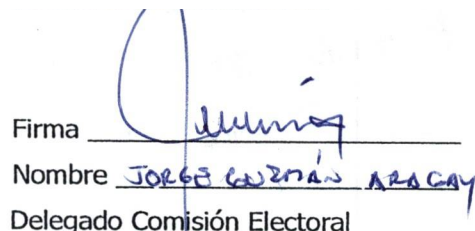 Firma
Nombre JORGE GUZMÁN ARAGAY
Delegado Comisión Electoral